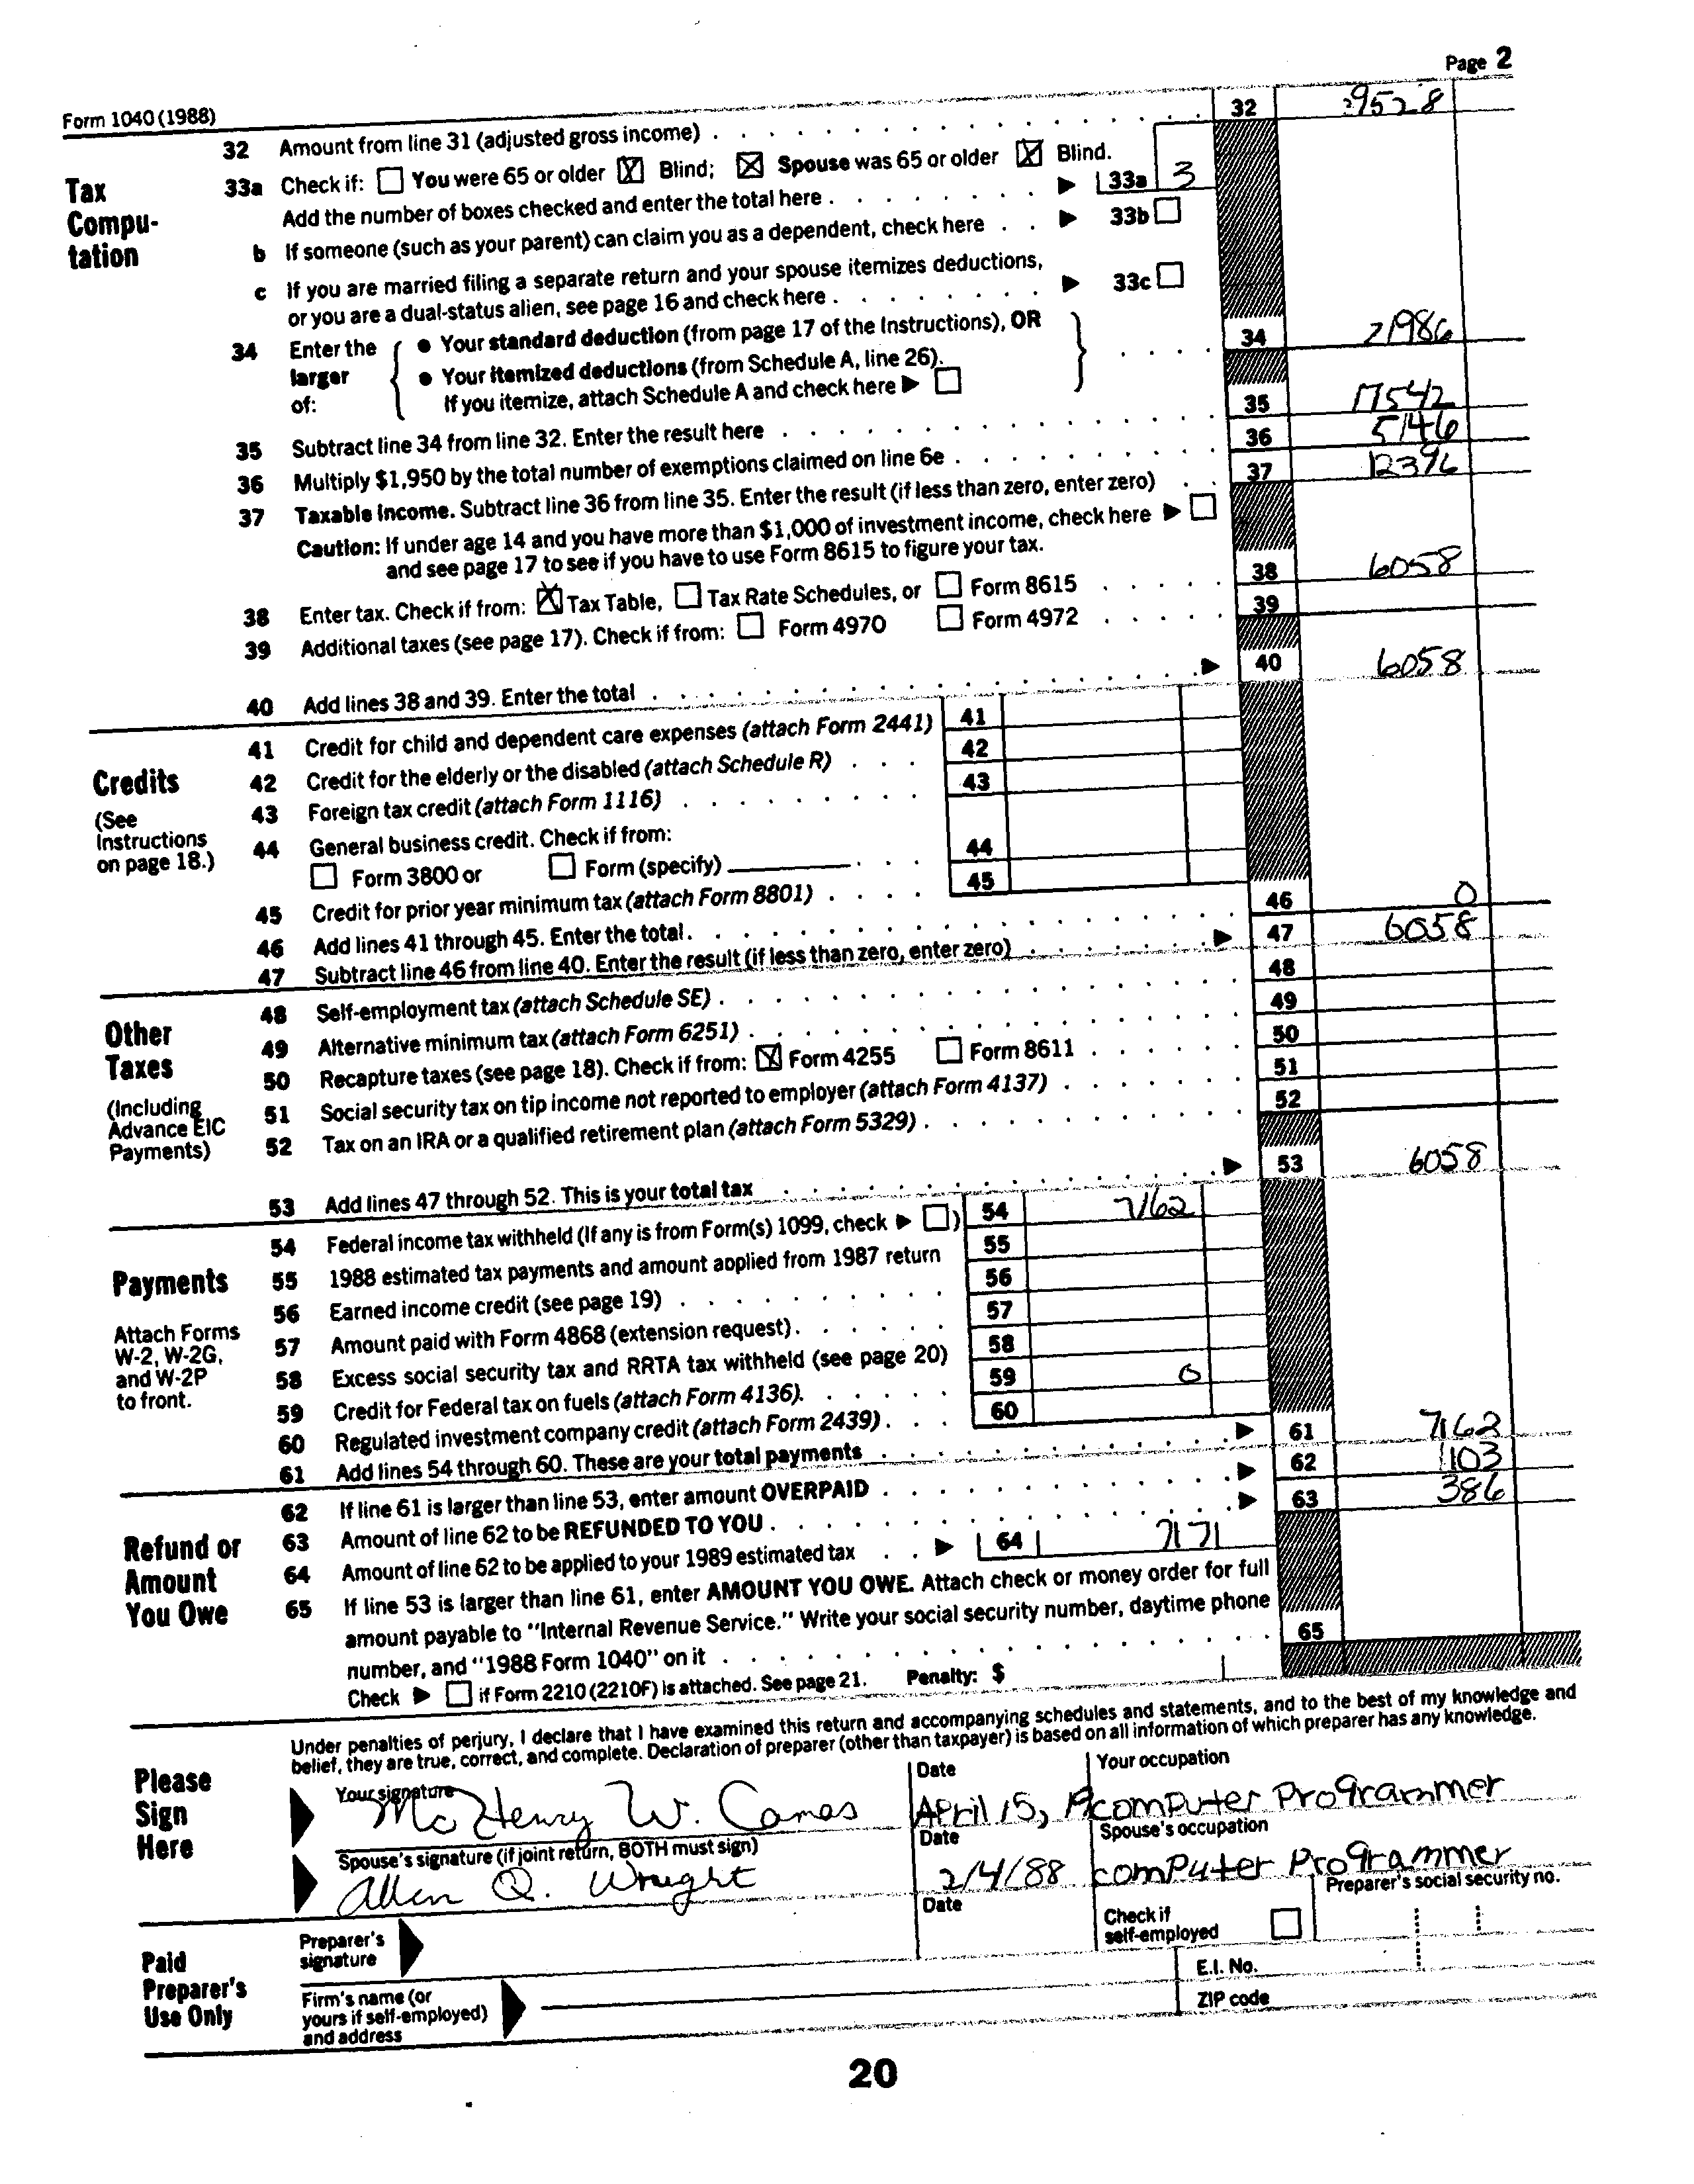 Page 2
Form 1040 (1988)
32 Amount from line 31 (adjusted gross income) 32 29528
Tax Compu-tation
33a Check if: You were 65 or older Blind; Spouse was 65 or older Blind.
Add the number of boxes checked and enter the total here 33a 3
b If someone (such as your parent) can claim you as a dependent, check here 33b
c If you are married filing a separate return and your spouse itemizes deductions,
or you are a dual-status alien, see page 16 and check here 33c
34 Enter the larger of: • Your standard deduction (from page 17 of the Instructions), OR
• Your itemized deductions (from Schedule A, line 26). 34 21986
If you itemize, attach Schedule A and check here
35 Subtract line 34 from line 32. Enter the result here 35 17542
36 Multiply $1,950 by the total number of exemptions claimed on line 6e 36 5146
37 Taxable income. Subtract line 36 from line 35. Enter the result (if less than zero, enter zero) 37 12396
Caution: If under age 14 and you have more than $1,000 of investment income, check here
and see page 17 to see if you have to use Form 8615 to figure your tax.
38 Enter tax. Check if from: Tax Table, Tax Rate Schedules, or Form 8615 38 6058
39 Additional taxes (see page 17). Check if from: Form 4970 Form 4972 39
40 Add lines 38 and 39. Enter the total 40 6058
Credits
(See Instructions on page 18.)
41 Credit for child and dependent care expenses (attach Form 2441) 41
42 Credit for the elderly or the disabled (attach Schedule R) 42
43 Foreign tax credit (attach Form 1116) 43
44 General business credit. Check if from:
Form 3800 or Form (specify) 44
45 Credit for prior year minimum tax (attach Form 8801) 45
46 Add lines 41 through 45. Enter the total. 46 0
47 Subtract line 46 from line 40. Enter the result (if less than zero, enter zero) 47 6058
Other Taxes
(Including Advance EIC Payments)
48 Self-employment tax (attach Schedule SE) 48
49 Alternative minimum tax (attach Form 6251) 49
50 Recapture taxes (see page 18). Check if from: Form 4255 Form 8611 50
51 Social security tax on tip income not reported to employer (attach Form 4137) 51
52 Tax on an IRA or a qualified retirement plan (attach Form 5329) 52
53 Add lines 47 through 52. This is your total tax 53 6058
Payments
Attach Forms W-2, W-2G, and W-2P to front.
54 Federal income tax withheld (If any is from Form(s) 1099, check ) 54 7162
55 1988 estimated tax payments and amount applied from 1987 return 55
56 Earned income credit (see page 19) 56
57 Amount paid with Form 4868 (extension request) 57
58 Excess social security tax and RRTA tax withheld (see page 20) 58
59 Credit for Federal tax on fuels (attach Form 4136). 59 0
60 Regulated investment company credit (attach Form 2439) 60
61 Add lines 54 through 60. These are your total payments 61 7162
Refund or Amount You Owe
62 If line 61 is larger than line 53, enter amount OVERPAID 62 1103
63 Amount of line 62 to be REFUNDED TO YOU 63 386
64 Amount of line 62 to be applied to your 1989 estimated tax 64 7171
65 If line 53 is larger than line 61, enter AMOUNT YOU OWE. Attach check or money order for full
amount payable to "Internal Revenue Service." Write your social security number, daytime phone
number, and "1988 Form 1040" on it 65
Check if Form 2210 (2210F) is attached. See page 21. Penalty: $
Please Sign Here
Under penalties of perjury, I declare that I have examined this return and accompanying schedules and statements, and to the best of my knowledge and
belief, they are true, correct, and complete. Declaration of preparer (other than taxpayer) is based on all information of which preparer has any knowledge.
Your signature Date Your occupation
McHenry W. Camas April 15, computer Programmer
Spouse's signature (if joint return, BOTH must sign) Date Spouse's occupation
Allen Q. Wright 2/4/88 computer Programmer
Paid Preparer's Use Only
Preparer's signature Date Check if self-employed Preparer's social security no.
Firm's name (or yours if self-employed) and address E.I. No.
ZIP code
20